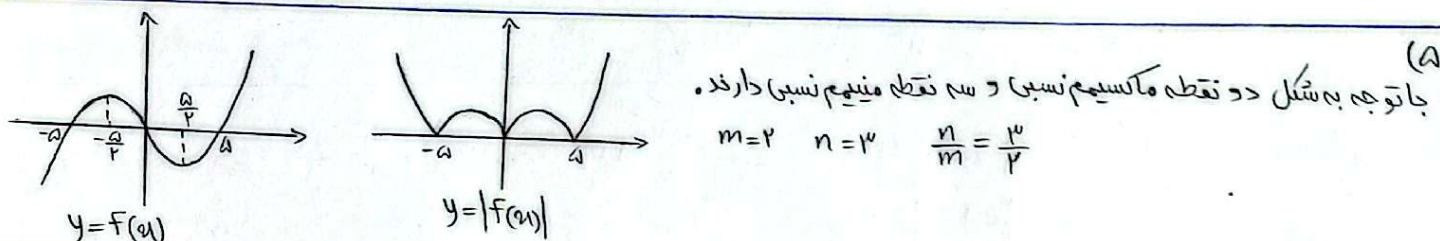 ۵)
با توجه به شکل دو نقطه ماکسیمم نسبی و سه نقطه مینیمم نسبی دارند.
m=۲ n=۳ n/m = ۳/۲
-۵ -۵/۲ ۵/۲ ۵
y=f(x)
-۵ ۵
y=|f(x)|